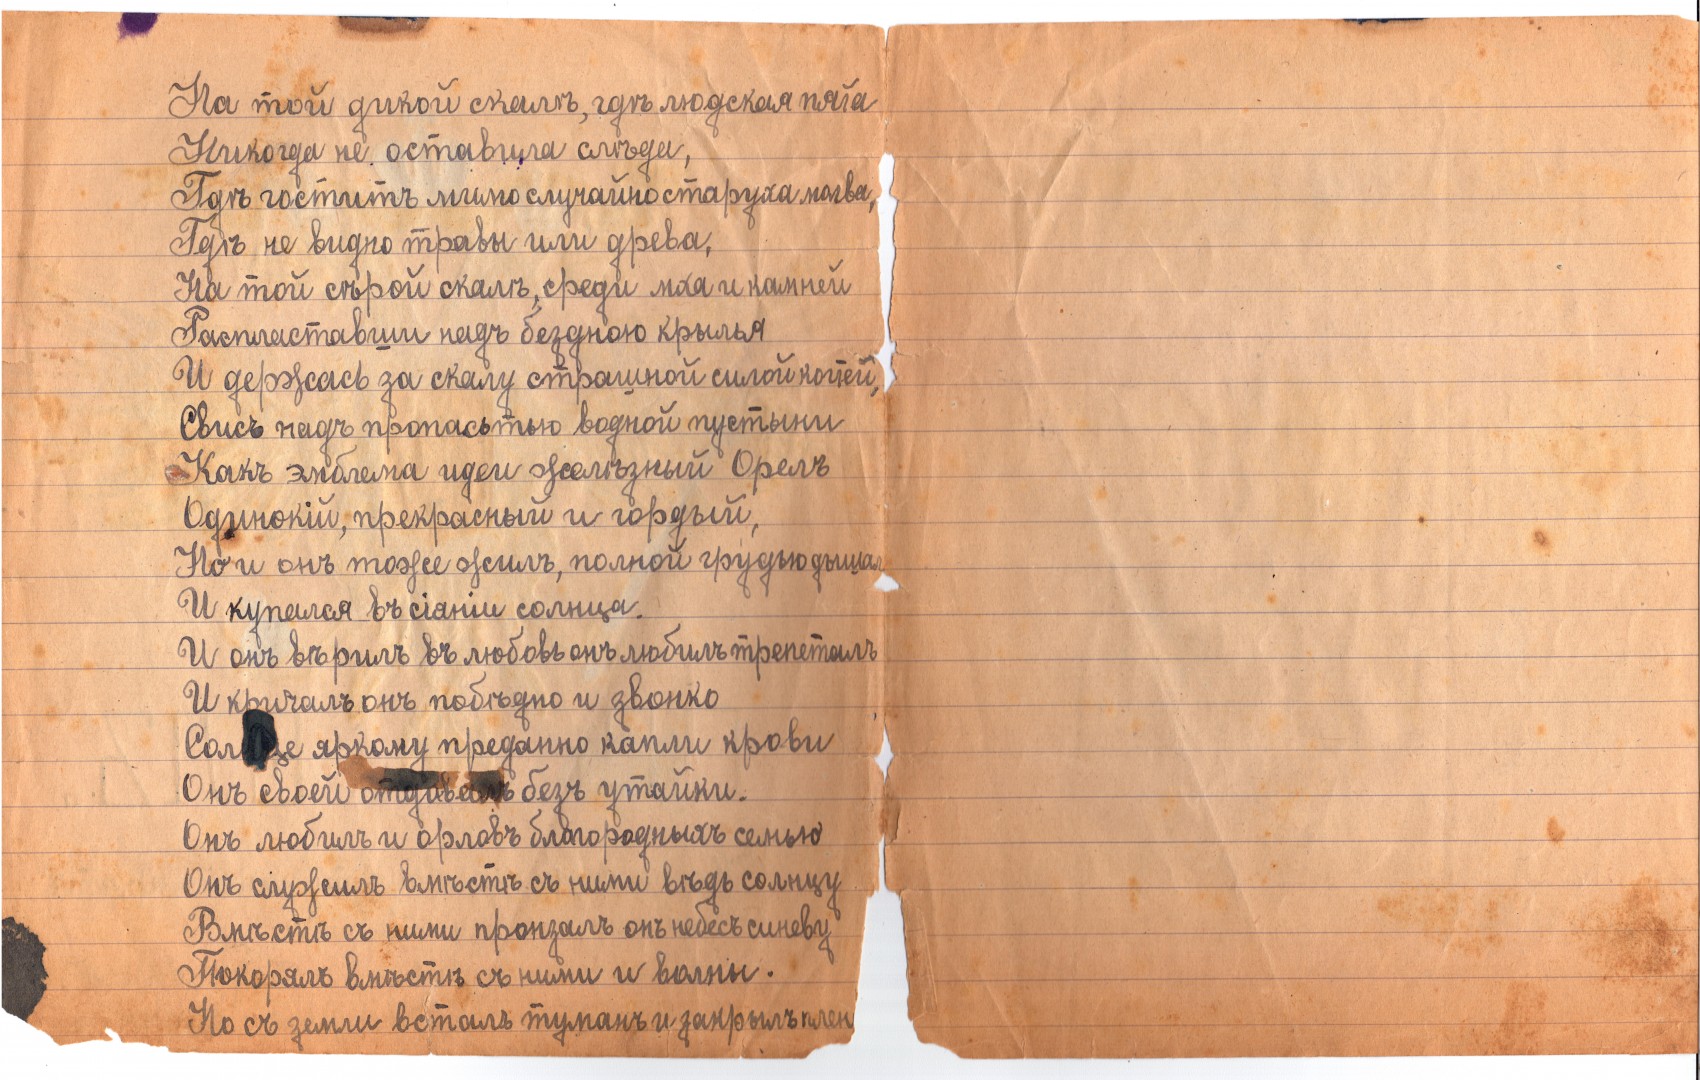 На той дикой скалѣ, гдѣ людская пята
Никогда не оставила слѣда,
Гдѣ гоститъ мимо случайно старуха молва,
Гдѣ не видно травы или древа,
На той сѣрой скалѣ, среди мха и камней
Распластавши надъ бездною крылья
И держась за скалу страшной силой когтей,
Свисъ надъ пропасьтью водной пустыни
Какъ эмблема идеи желѣзный Орелъ
Одинокій, прекрасный и гордый,
Но и онъ тоже жилъ, полной грудью дышал
И купался въ сіаніи солнца.
И онъ вѣрилъ въ любовь онъ любилъ трепеталъ
И кричалъ онъ побѣдно и звонко
Солнце яркому преданно капли крови
Онъ своей отдавалъ безъ утайки.
Онъ любилъ и орловъ благородныхъ семью
Онъ служилъ вмѣстѣ съ ними вѣдь солнцу
Вмѣстѣ съ ними пронзалъ онъ небесъ синеву
Покорялъ вмѣстѣ съ ними и волны.
Но съ земли всталъ туманъ и закрылъ плен